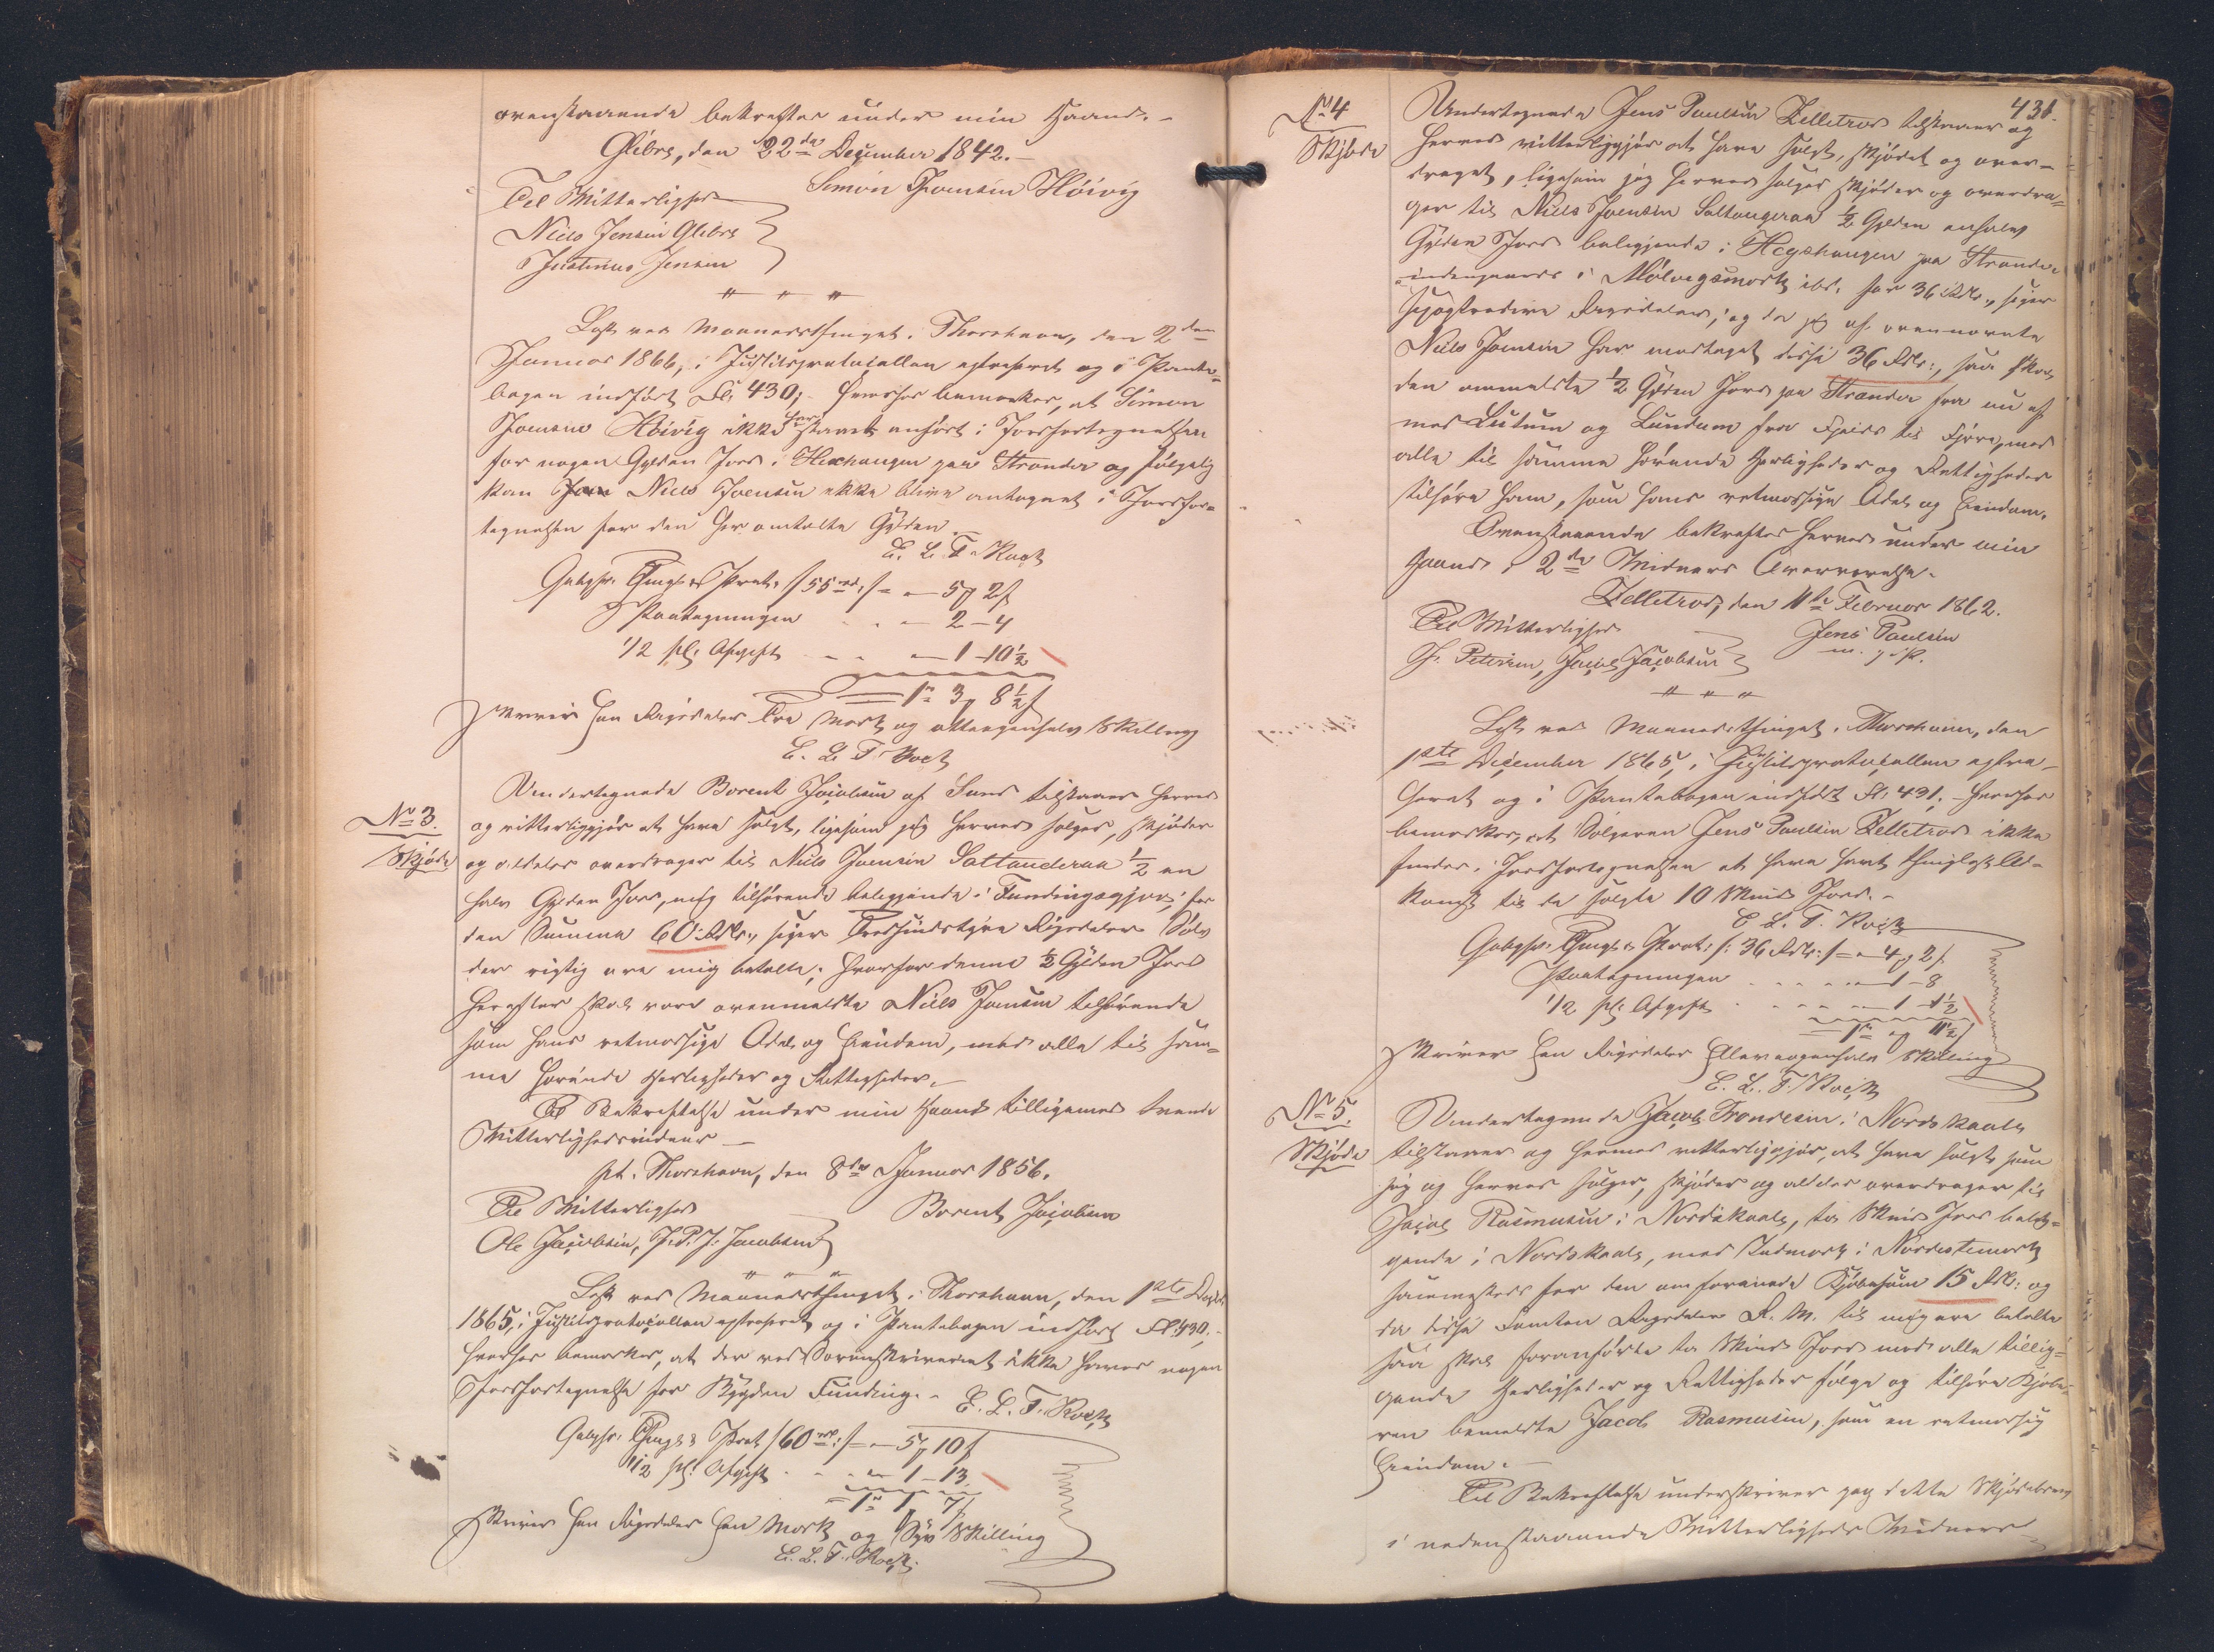 ovenstaaende bekræftes under min Haand. –
Glibre, den 22de December 1842. –
Simon Joensen Höivig
Til Vitterlighed
Niels Jensen Glibre
Justinus Jensen
" " "
Læst ved Maanedsthinget i Thorshavn, den 2den
Januar 1866, i Justitsprotocollen extraheret og i Pante-
bogen indført Fol. 430; hvorhos bemærkes, at Simon
Joensen Höivig ikke har staaet anført i Jordfortegnelsen
for nogen Gylden Jord i paa Strender og følgelig
kan Niels Joensen ikke blive antegnet i Jordfor-
tegnelsen for den her omtalte Gylden.
E. L. T. Koch
Gebyhr. Thingl. & Prot. /55 rd./ = – 5 ₰ 2 s
Paategningen . . – 2 – 4
1/2 pCt. Afgift . . – 1 – 10 1/2
= 1 rd 3 ₰ 8 1/2 s
skriver Een Rigsdaler Tre Mark og ottengenhalv Skilling
E. L. T. Koch
No 3.
Skjöde
Undertegnede Berent Jacobsen af Sund tilstaaer herved
og vitterliggjør at have solgt, ligesom jeg herved sælger, skjöder
og aldeles overdrager til Niels Joensen Saltanderaa 1/2 en
halv Gylden Jord, mig tilhørende beliggende i Fundingsgjov, for
den Summa 60 Rdlr., siger Tredsindstyve Rigsdaler Sølv
der rigtig ere mig betalte; hvorfor denne 1/2 Gylden Jord
herefter skal være ovenmeldte Niels Joensen tilhørende
som hans retmæssige Odel og Eiendom, med alle til sam-
me hørende Herligheder og Rettigheder. –
Til Bekræftelse under min Haand tilligemed tvende
Vitterlighedsvidner –
pt. Thorshavn, den 8de Januar 1856.
Til Vitterlighed
Berent Jacobsen
Ole Jacobsen, J. P. J. Jacobsen
" " "
Læst ved Maanedsthinget i Thorshavn, den 1ste Decbr
1865, i Justitsprotocollen extraheret og i Pantebogen indført Fol. 430. –
hvorhos bemærkes, at der ved Sorenskriveriet ikke haves nogen
Jordfortegnelse for Bygden Funding. –
E. L. T. Koch
Gebyhr. Thingl. & Prot. /60 rd./ = – 5 ₰ 10 s
1/2 pCt. Afgift . . – 1 – 13
= 1 rd 1 ₰ 7 s
skriver Een Rigsdaler Een Mark og Syv Skilling
E. L. T. Koch.
431.
No 4
Skjöde
Undertegnede Jens Paulsen Zelletrod tilstaaer og
herved vitterliggjør at have solgt, skjödet og over-
draget, ligesom jeg herved sælger skjöder og overdra-
ger til Niels Joensen Saltangeraa 1/2 Gylden enhalv
Gylden Jord beliggende i paa Strender
indengaards i Mölvegsmark ibd. for 36 Rdlr., siger
sexogtredive Rigsdaler; og da jeg af ovennævnte
Niels Joensen har modtaget disse 36 Rdlr:, saa skal
den anmeldte 1/2 Gylden Jord paa Strender fra nu af
med Lutum og Lundum fra Fjeld til Fjære, med
alle til samme hørende Herligheder og Rettigheder
tilhøre ham, som hans retmæssige Odel og Eiendom.
Ovenstaaende bekræftes herved under min
Haand i 2de Vidners Overværelse.
Zelletrod, den 11te Februar 1862.
Til Vitterlighed
Jens Paulsen
m. f. P.
J. Petersen, Jacob Jacobsen
" " "
Læst ved Maanedsthinget i Thorshavn, den
1ste December 1865, i Justitsprotocollen extra-
heret og i Pantebogen indført Fol. 431. – hvorhos
bemærkes, at Sælgeren Jens Paulsen Zelletrod ikke
findes i Jordfortegnelsen at have havt thinglæst Ad-
komst til de solgte 10 Skind Jord. –
E. L. T. Koch
Gebyhr. Thingl. & Prot. /: 36 Rdlr :/ = – 4 ₰ 2 s
Paategningen . . . . – 1 – 8
1/2 pCt. Afgift . . . – 1 – 1 1/2
= 1 rd " ₰ 11 1/2 s
skriver Een Rigsdaler Ellevengenhalv Skilling
E. L. T. Koch
No 5.
Skjöde
Undertegnede Jacob Trondesen i Nordskaale
tilstaaer og hermed vitterliggjör, at have solgt, som
jeg og herved sælger, skjöder og aldeles overdrager til
Jacob Rasmusen i Nordskaale, to Skind Jord belig-
gende i Nordskaale, med Indmark i Nordestemark
sammesteds for den omforenede Kjøbesum 15 Rdlr: og
da disse Femten Rigsdaler R. M. til mig ere betalte
saa skal foranførte to Skind Jord med alle tillig-
gende Herligheder og Rettigheder følge og tilhøre Kjøbe-
ren bemeldte Jacob Rasmusen, som en retmæssig
Eiendom. –
Til Bekræftelse underskriver jeg dette Skjödebrev
i nedenstaaende Vitterligheds Vidners